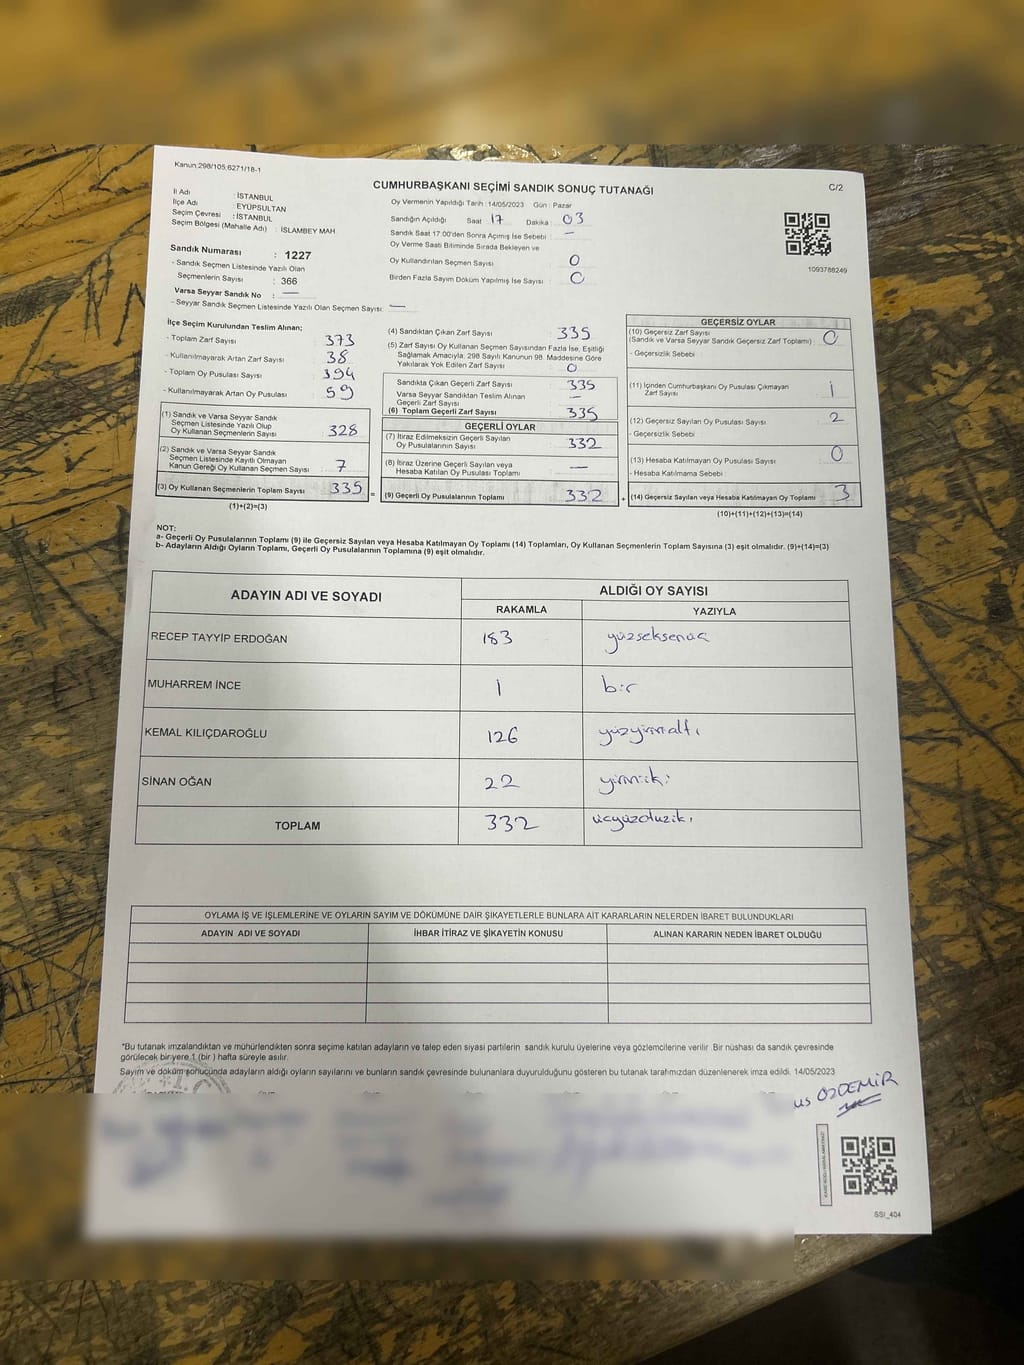 Kanun:298/105;6271/18-1
CUMHURBAŞKANI SEÇİMİ SANDIK SONUÇ TUTANAĞI
C/2
İl Adı : İSTANBUL
İlçe Adı : EYÜPSULTAN
Seçim Çevresi : İSTANBUL
Seçim Bölgesi (Mahalle Adı) : İSLAMBEY MAH
Sandık Numarası : 1227
- Sandık Seçmen Listesinde Yazılı Olan
Seçmenlerin Sayısı : 366
Varsa Seyyar Sandık No : —
- Seyyar Sandık Seçmen Listesinde Yazılı Olan Seçmen Sayısı: —
Oy Vermenin Yapıldığı Tarih : 14/05/2023 Gün : Pazar
Sandığın Açıldığı Saat 17 Dakika : 03
Sandık Saat 17.00'den Sonra Açılmış İse Sebebi : —
Oy Verme Saati Bitiminde Sırada Bekleyen ve
Oy Kullandırılan Seçmen Sayısı : 0
Birden Fazla Sayım Döküm Yapılmış İse Sayısı : 0
1093788249
İlçe Seçim Kurulundan Teslim Alınan;
- Toplam Zarf Sayısı : 373
- Kullanılmayarak Artan Zarf Sayısı : 38
- Toplam Oy Pusulası Sayısı : 394
- Kullanılmayarak Artan Oy Pusulası : 59
(1) Sandık ve Varsa Seyyar Sandık
Seçmen Listesinde Yazılı Olup
Oy Kullanan Seçmenlerin Sayısı : 328
(2) Sandık ve Varsa Seyyar Sandık
Seçmen Listesinde Kayıtlı Olmayan
Kanun Gereği Oy Kullanan Seçmen Sayısı : 7
(3) Oy Kullanan Seçmenlerin Toplam Sayısı : 335 =
(1)+(2)=(3)
(4) Sandıktan Çıkan Zarf Sayısı : 335
(5) Zarf Sayısı Oy Kullanan Seçmen Sayısından Fazla İse, Eşitliği
Sağlamak Amacıyla, 298 Sayılı Kanunun 98. Maddesine Göre
Yakılarak Yok Edilen Zarf Sayısı : 0
Sandıkta Çıkan Geçerli Zarf Sayısı : 335
Varsa Seyyar Sandıktan Teslim Alınan
Geçerli Zarf Sayısı : —
(6) Toplam Geçerli Zarf Sayısı : 335
GEÇERLİ OYLAR
(7) İtiraz Edilmeksizin Geçerli Sayılan
Oy Pusulalarının Sayısı : 332
(8) İtiraz Üzerine Geçerli Sayılan veya
Hesaba Katılan Oy Pusulası Toplamı : —
(9) Geçerli Oy Pusulalarının Toplamı : 332 +
GEÇERSİZ OYLAR
(10) Geçersiz Zarf Sayısı : 0
(Sandık ve Varsa Seyyar Sandık Geçersiz Zarf Toplamı)
- Geçersizlik Sebebi :
(11) İçinden Cumhurbaşkanı Oy Pusulası Çıkmayan
Zarf Sayısı : 1
(12) Geçersiz Sayılan Oy Pusulası Sayısı : 2
- Geçersizlik Sebebi :
(13) Hesaba Katılmayan Oy Pusulası Sayısı : 0
- Hesaba Katılmama Sebebi :
(14) Geçersiz Sayılan veya Hesaba Katılmayan Oy Toplamı : 3
(10)+(11)+(12)+(13)=(14)
NOT:
a- Geçerli Oy Pusulalarının Toplamı (9) ile Geçersiz Sayılan veya Hesaba Katılmayan Oy Toplamı (14) Toplamları, Oy Kullanan Seçmenlerin Toplam Sayısına (3) eşit olmalıdır. (9)+(14)=(3)
b- Adayların Aldığı Oyların Toplamı, Geçerli Oy Pusulalarının Toplamına (9) eşit olmalıdır.
ADAYIN ADI VE SOYADI
ALDIĞI OY SAYISI
RAKAMLA YAZIYLA
RECEP TAYYİP ERDOĞAN 183 yüzseksenüç
MUHARREM İNCE 1 bir
KEMAL KILIÇDAROĞLU 126 yüzyirmialtı
SİNAN OĞAN 22 yirmiiki
TOPLAM 332 üçyüzotuziki
OYLAMA İŞ VE İŞLEMLERİNE VE OYLARIN SAYIM VE DÖKÜMÜNE DAİR ŞİKAYETLERLE BUNLARA AİT KARARLARIN NELERDEN İBARET BULUNDUKLARI
ADAYIN ADI VE SOYADI İHBAR İTİRAZ VE ŞİKAYETİN KONUSU ALINAN KARARIN NEDEN İBARET OLDUĞU
*Bu tutanak imzalandıktan ve mühürlendikten sonra seçime katılan adayların ve talep eden siyasi partilerin sandık kurulu üyelerine veya gözlemcilerine verilir. Bir nüshası da sandık çevresinde
görülecek bir yere 1 (bir) hafta süreyle asılır.
Sayım ve döküm sonucunda adayların aldığı oyların sayılarını ve bunların sandık çevresinde bulunanlara duyurulduğunu gösteren bu tutanak tarafımızdan düzenlenerek imza edildi. 14/05/2023
us ÖZDEMİR
SSI_404